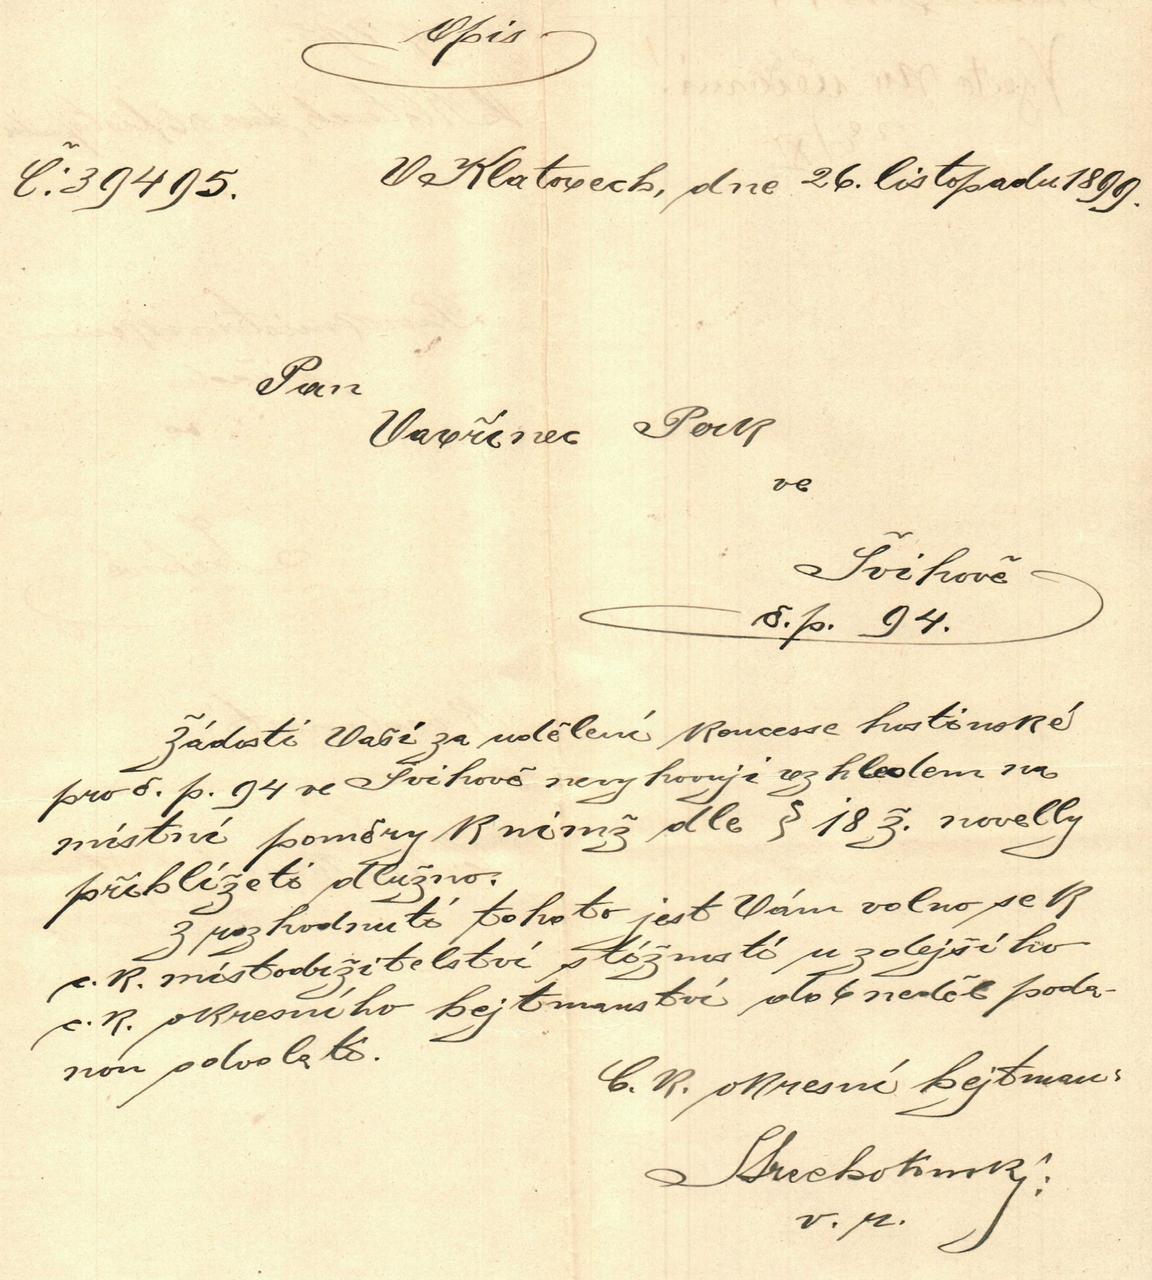 Opis
Č: 39495.
V Klatovech, dne 26. listopadu 1899.
Pan
Vavřinec Pork
ve
Švihově
č.p. 94.
Žádosti Vaší za udělení koncesse hostinské
pro č. p. 94 ve Švihově nevyhovuji vzhledem na
místní poměry k nimž dle § 18 ž. novelly
přihlížeti dlužno.
Z rozhodnutí tohoto jest Vám volno se k
c. k. místodržitelství stížností u zdejšího
c. k. okresního hejtmanství do 6 neděl poda-
nou odvolati.
C. k. okresní hejtman:
v. r.